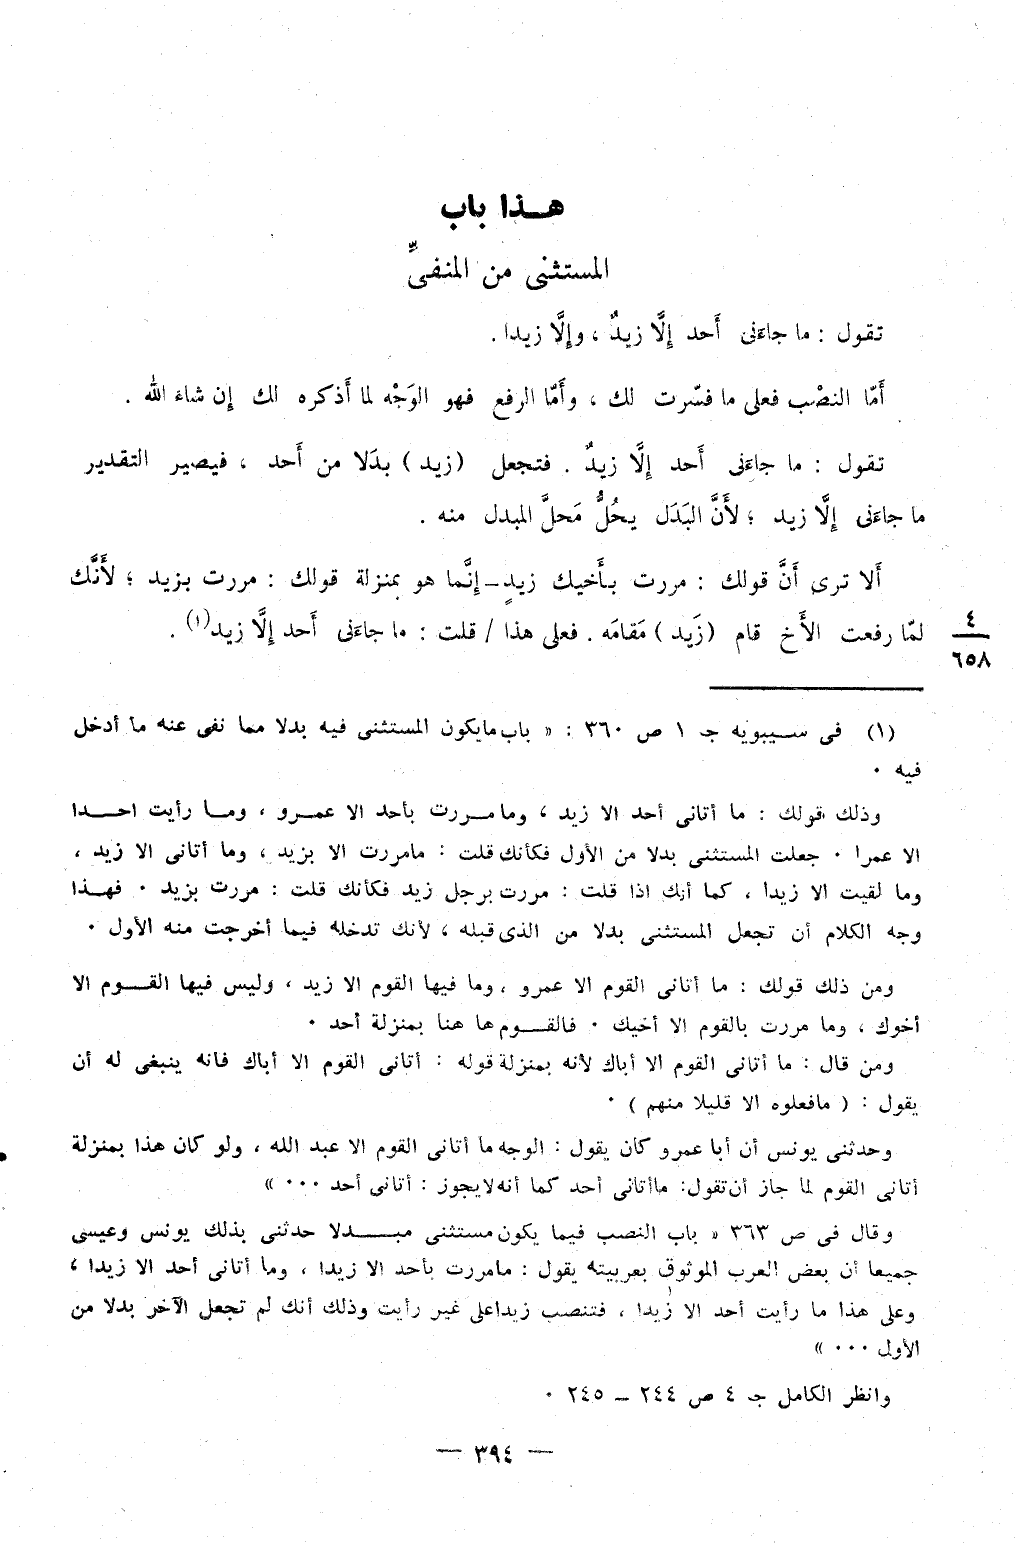 هــذا باب
المستثنى من المنفىِّ
تقول : ما جاءَنى أَحد إلَّا زيدٌ ، وإلَّا زيدا .
أمّا النصْب فعلى ما فسّرت لك ، وأَمّا الرفع فهو الوَجْه لما أَذكره لك إن شاءَ الله .
تقول : ما جاءَنى أَحد إلَّا زيدٌ . فتجعل (زيد) بدَلا من أَحد ، فيصير التقدير
ما جاءَنى إلَّا زيد ؛ لأَنَّ البَدَل يحُلُّ مَحلَّ المبدل منه .
أَلا ترى أَنَّ قولك : مررت بأَخيك زيدٍ ــ إنَّما هو بمنزلة قولك : مررت بزيد ؛ لأَنَّك
لمّا رفعت الأَخ قام (زَيد) مَقامَه . فعلى هذا / قلت : ما جاءَنى أَحد إلَّا زيد(١) .
٤
٦٥٨
(١) فى سـيبويه جـ ١ ص ٣٦٠ : « باب مايكون المستثنى فيه بدلا مما نفى عنه ما أدخل
فيه ٠
وذلك قولك : ما أتانى أحد الا زيد ، وما مــررت بأحد الا عمــرو ، ومــا رأيت احــدا
الا عمرا ٠ جعلت المستثنى بدلا من الأول فكأنك قلت : مامررت الا بزيد ، وما أتانى الا زيد ،
وما لقيت الا زيدا ، كما أنك اذا قلت : مررت برجل زيد فكأنك قلت : مررت بزيد ٠ فهــذا
وجه الكلام أن تجعل المستثنى بدلا من الذى قبله ، لأنك تدخله فيما أخرجت منه الأول ٠
ومن ذلك قولك : ما أتانى القوم الا عمرو ، وما فيها القوم الا زيد ، وليس فيها القــوم الا
أخوك ، وما مررت بالقوم الا أخيك ٠ فالقــوم ها هنا بمنزلة أحد ٠
ومن قال : ما أتانى القوم الا أباك لأنه بمنزلة قوله : أتانى القوم الا أباك فانه ينبغى له أن
يقول : ( مافعلوه الا قليلا منهم ) ٠
وحدثنى يونس أن أبا عمرو كان يقول : الوجه ما أتانى القوم الا عبد الله ، ولو كان هذا بمنزلة
أتانى القوم لما جاز أن تقول: ماأتانى أحد كما أنه لايجوز : أتانى أحد ٠٠٠ »
وقال فى ص ٣٦٣ « باب النصب فيما يكون مستثنى مبــدلا حدثنى بذلك يونس وعيسى
جميعا أن بعض العرب الموثوق بعربيته يقول : مامررت بأحد الا زيدا ، وما أتانى أحد الا زيدا ،
وعلى هذا ما رأيت أحد الا زيدا ، فتنصب زيدا على غير رأيت وذلك أنك لم تجعل الآخر بدلا من
الأول ٠٠٠ »
وانظر الكامل جـ ٤ ص ٢٤٤ ــ ٢٤٥ ٠
— ٣٩٤ —